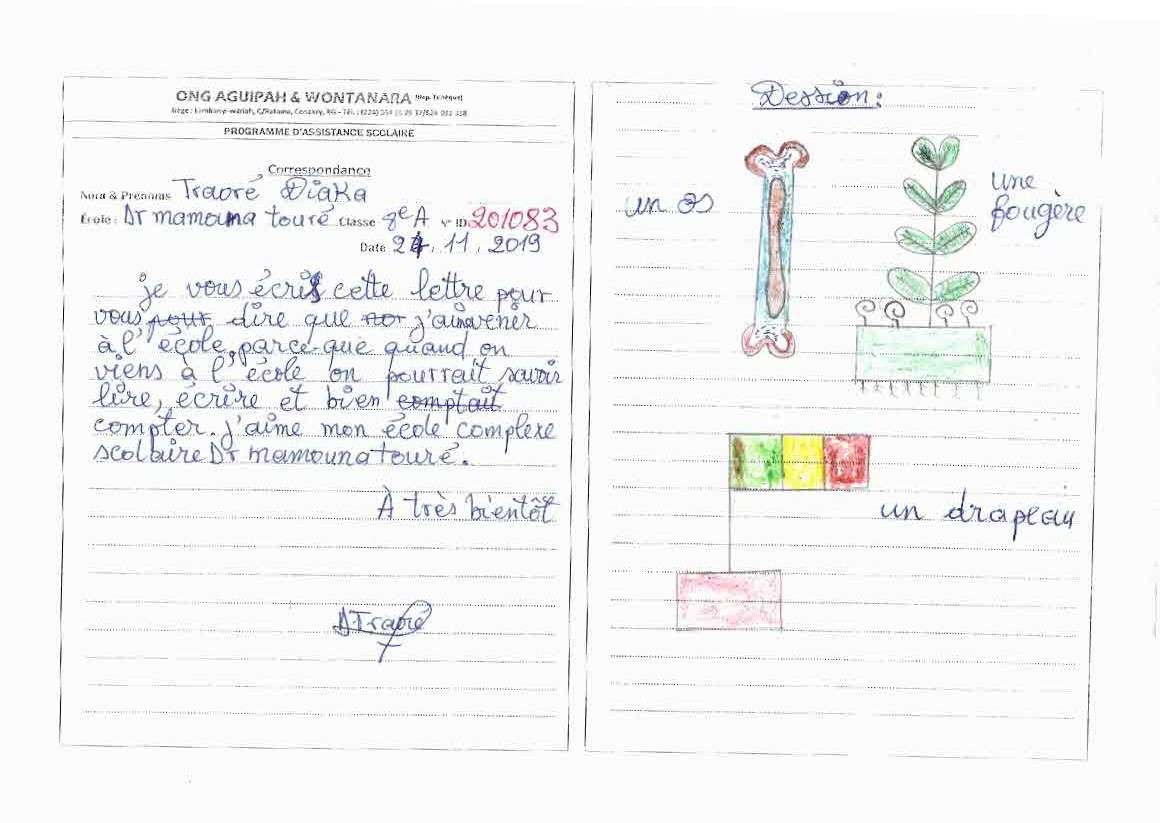 ONG AGUIPAH & WONTANARA
PROGRAMME D'ASSISTANCE SCOLAIRE
Correspondance
Nom & Prénoms Traoré Diaka
École: Dr mamouna touré Classe 8e A N° ID 201083
Date 24.11.2019
je vous écris cette lettre pour
vous pour dire que j'aime venir
à l'école, parce-que quand on
viens à l'école on pourrait savoir
lire, écrire et bien comptait
compter. j'aime mon école complexe
scolaire Dr mamouna touré.
À très bientôt
DTraoré
Dession:
un os
une
fougère
un drapeau